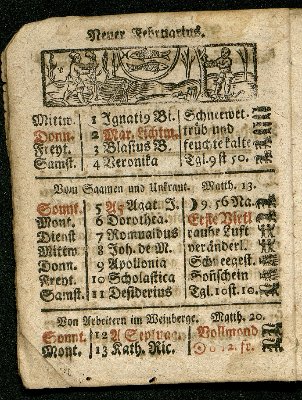 Neuer Februarius.
Mittw. 1 Ignatig Bi. Schneewet.
Donn. 2 Mar. Lichtm. trüb und
Freyt. 3 Blasius B. feuchte kalte
Samst. 4 Veronika Tgl. 9 st 50.
Vom Saamen und Unkraut. Matth. 13.
Sonnt. 5 Agat. J. 9. 56 Na.
Mont. 6 Dorothea. Erste Viert
Dienst 7 Romualdus rauhe Luft
Mittw 8 Joh. de M. veränderl.
Donn. 9 Apollonia
Freyt. 10 Scholastica Sonschein
Samst. 11 Desiderius Tgl. 10 st. 10.
Von Arbeitern im Weinberge. Matth. 20.
Sonnt. 12 A Septuag. Vollmond
Mont. 13 Kath. Ric.